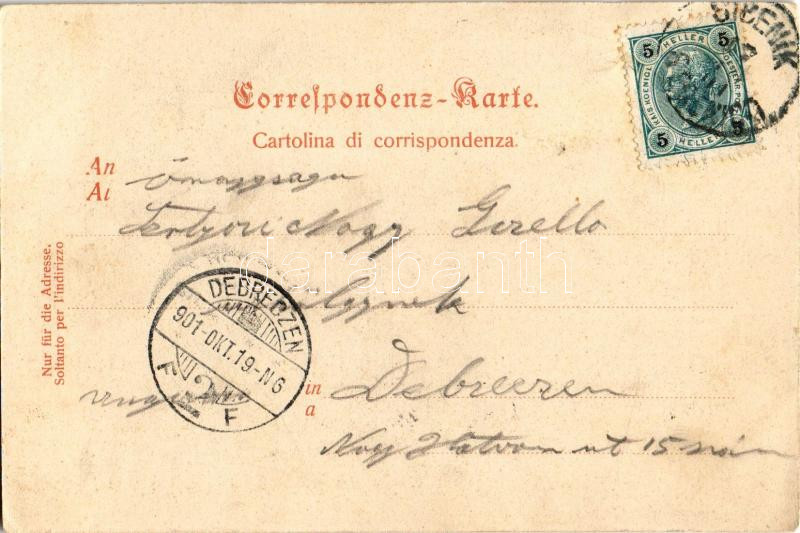 SIBENIK
5 HELLER 5
KAIS. KOENIGL.
5 HELLER 5
Correſpondenz-Karte.
Cartolina di corrispondenza.
An
Al
Nagy Gizella
Nur für die Adresse.
Soltanto per l'indirizzo
darabanth
DEBRECZEN
901-OKT.19-N6
F F
in
a
Debreczen
Nagy Hatvan ut 15 szám